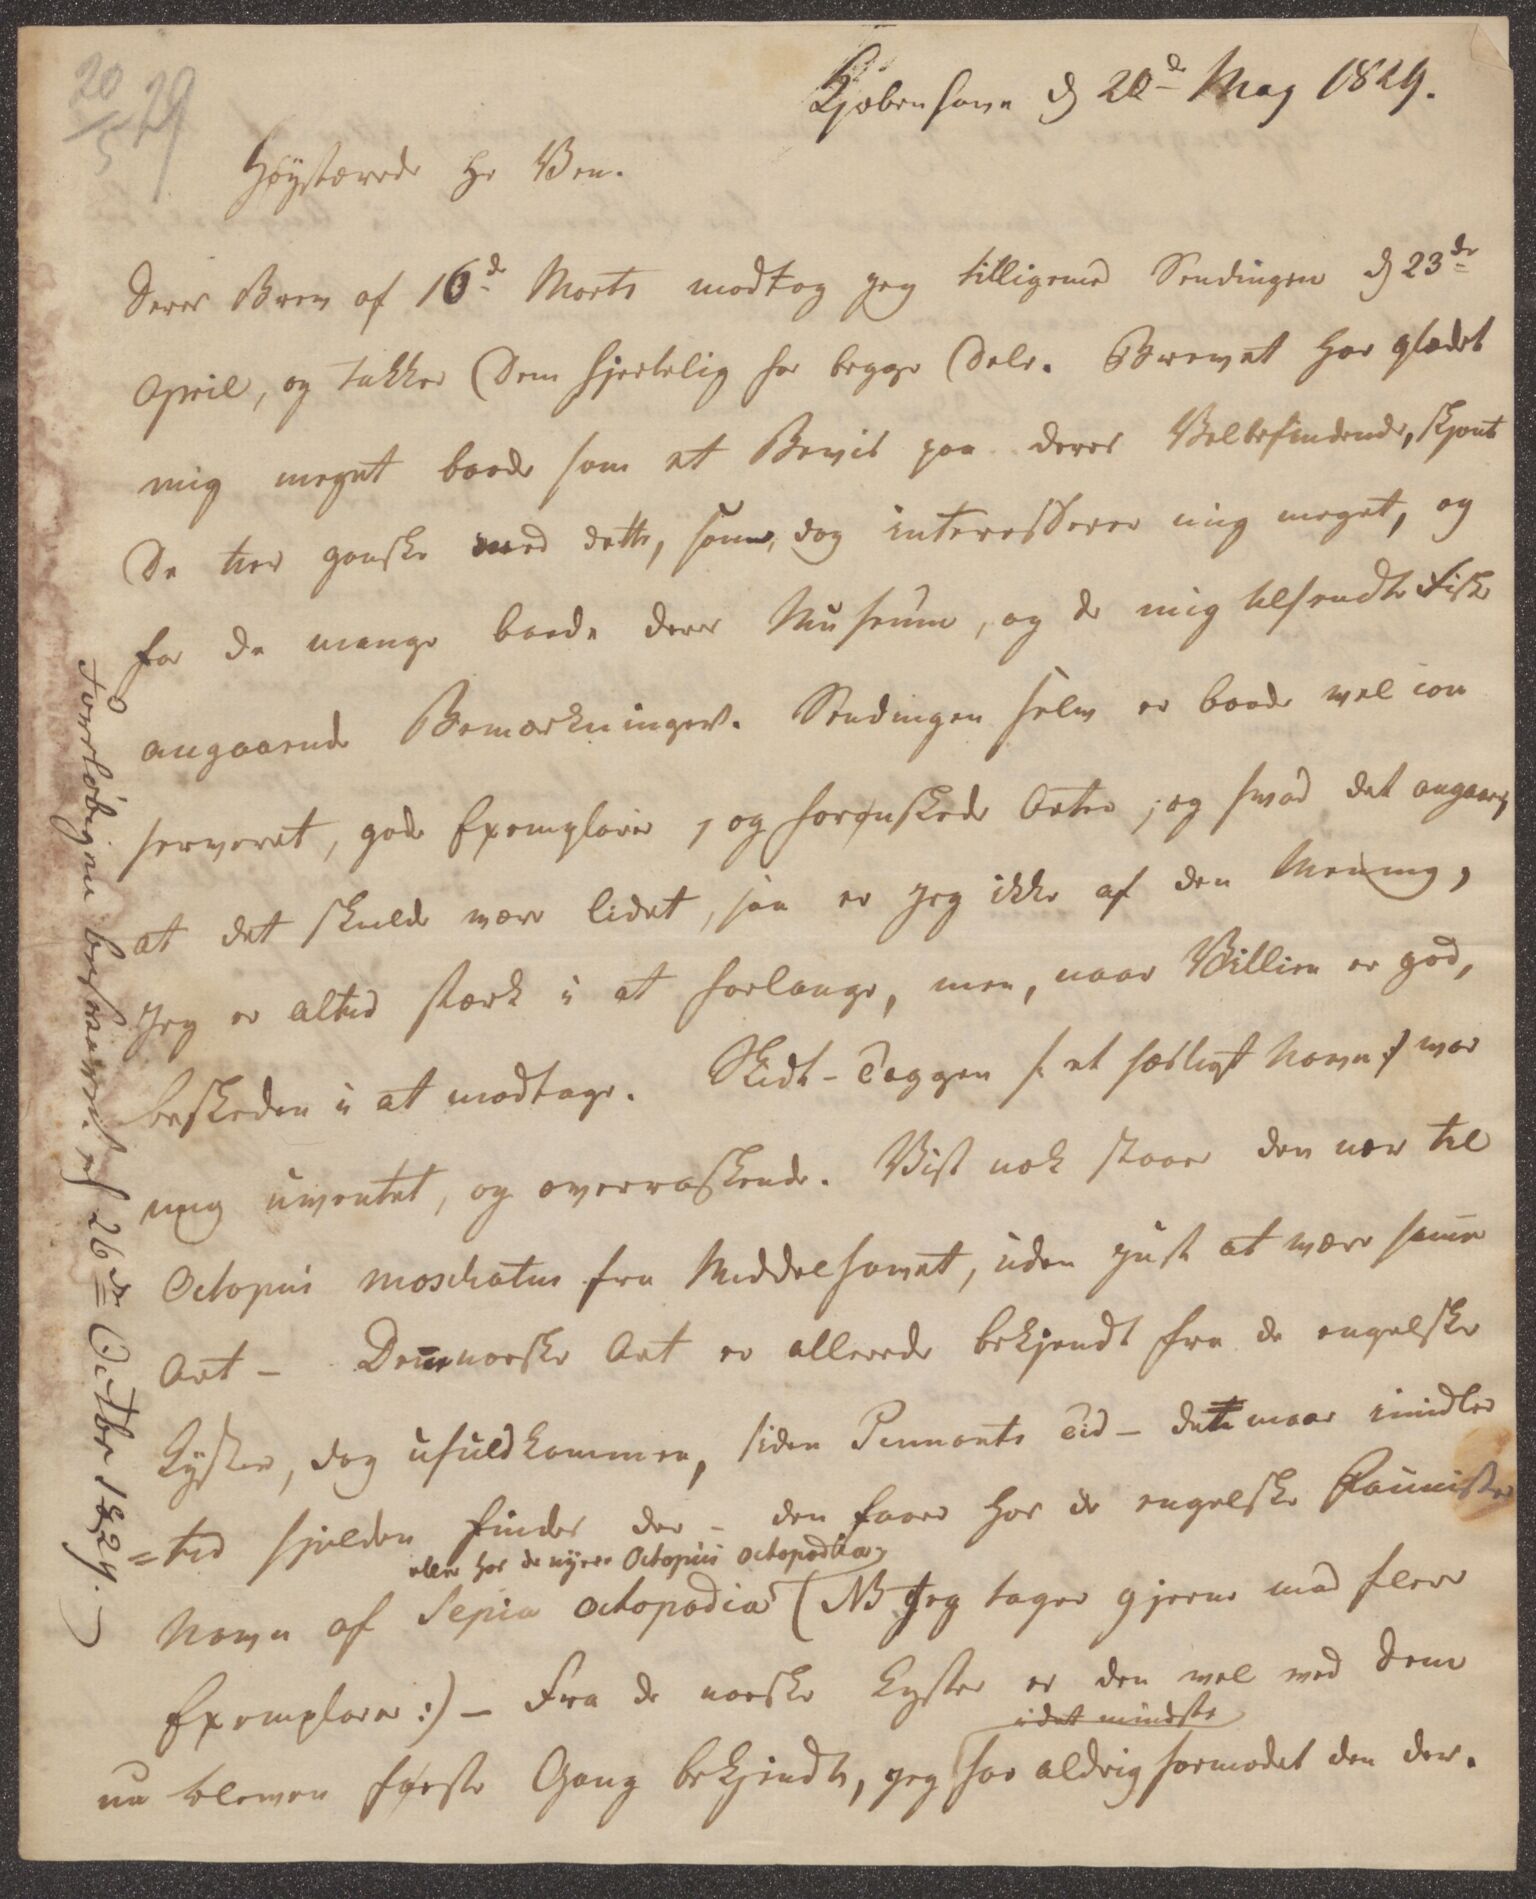 20/5 29
Kjøbenhavn d 20de May 1829.
Høystærede Hr Ven.
Deres Brev af 16de Marts modtog jeg tilligemed Sendingen d 23de
April, og takker Dem hjertelig for begge Dele. Brevet har glædet
mig meget baade som et Beviis paa deres Velbefindende, skjønt
De tier ganske med dette, som dog interesserer mig meget, og
for de mange baade deres Museum, og de mig tilsendte Fiske
angaaende Bemærkninger. Sendingen selv er baade vel con
serveret, gode Exemplarer, og forønskede Arter; og hvad det angaaer,
at det skulde være lidet, saa er jeg ikke af den Mening,
jeg er altid stærk i at forlange, men, naar Villien er god,
beskeden i at modtage. Skidt-Taggen (: et hæsligt Navn :) var
mig uventet, og overraskende. Vist nok staaer den nær til
Octopus moschatus fra Middelhavet, uden just at være samme
Art – Den norske Art er allerede bekjendt fra de engelske
Kyster, dog ufuldkommen, siden Pennants Tid – dette maae imidler
=tid sjelden findes der – den faaer hos de engelske Faunister
eller hos de nyere Octopus octopodia
Navn af Sepia octopodia (NB Jeg tager gjerne mod flere
Exemplarer :) – Fra de norske Kyster er den vel ved Dem
idet mindste
nu bleven første Gang bekjendt, jeg har aldrig formodet den der.
Foreløbigen besvaret d 26de Octbr 1829.